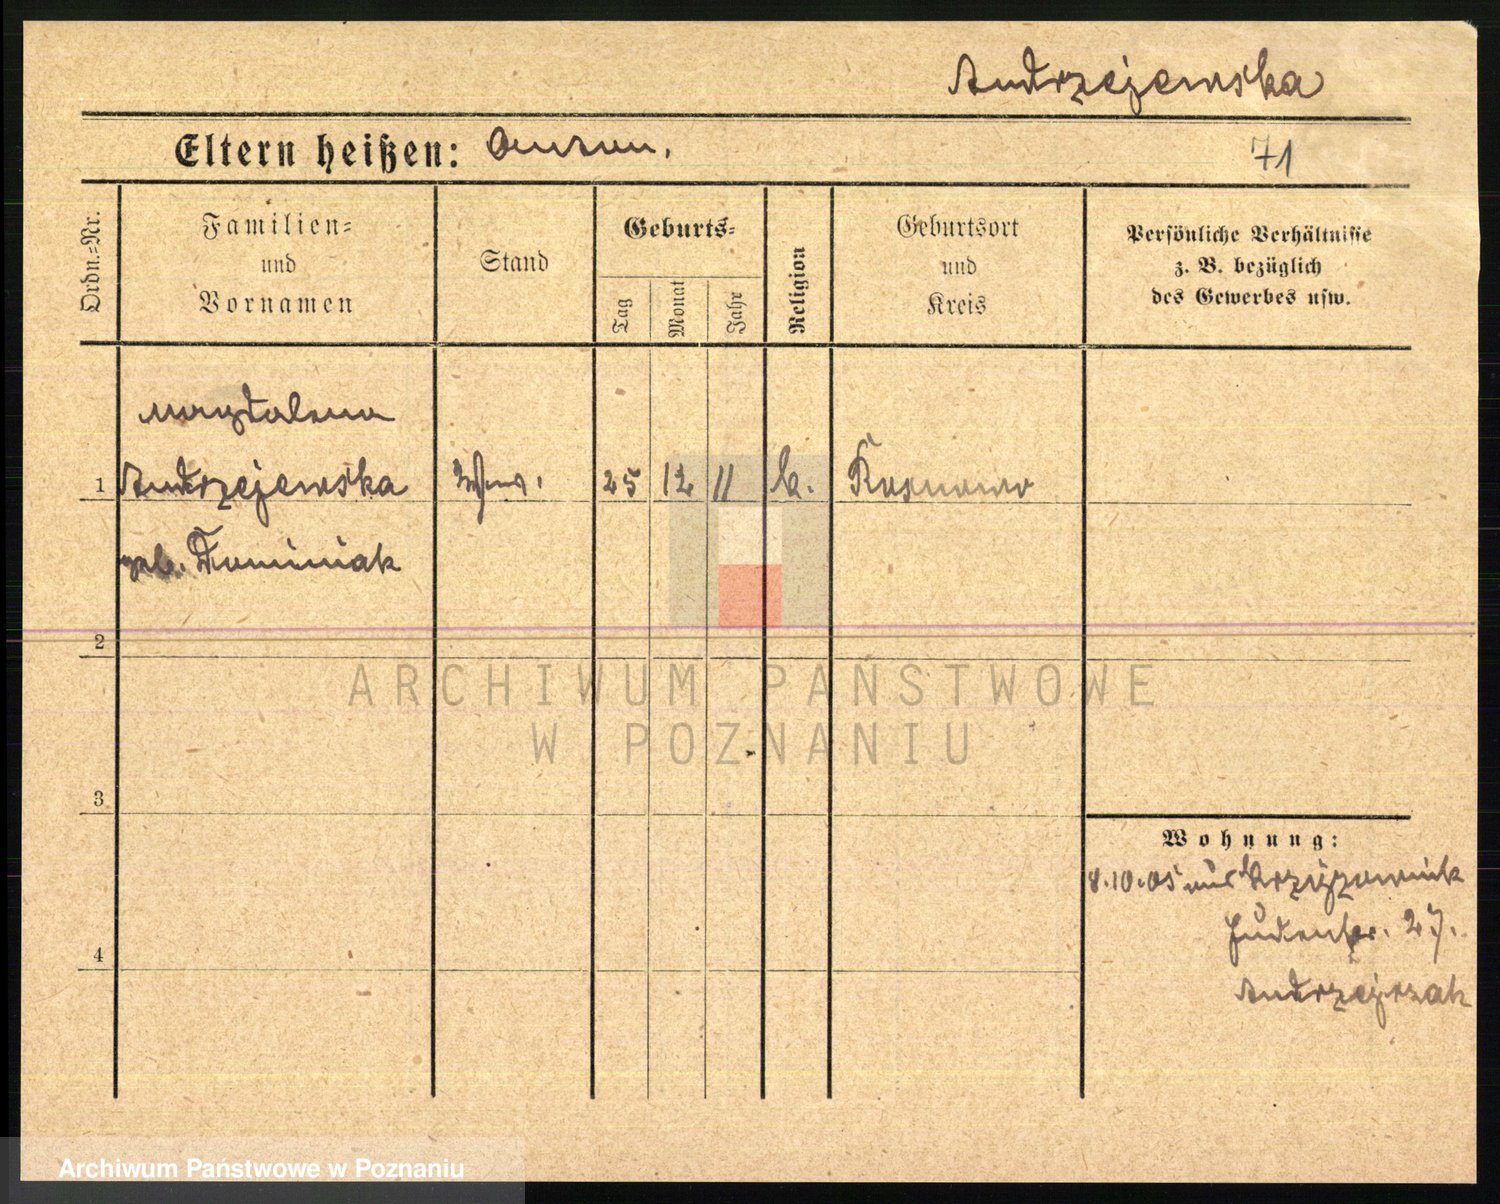 Andrzejewska
Eltern heißen:
71
Ordn.=Nr.
Familien=
und
Vornamen
Stand
Geburts=
Tag
Monat
Jahr
Religion
Geburtsort
und
Kreis
Persönliche Verhältnisse
z. B. bezüglich
des Gewerbes usw.
Magdalena
1 Andrzejewska 25 12 11 k.
geb. Dominiak
2
3
4
Wohnung:
8.10.05 aus
Judenstr. 27.
ARCHIWUM PAŃSTWOWE
W POZNANIU
Archiwum Państwowe w Poznaniu